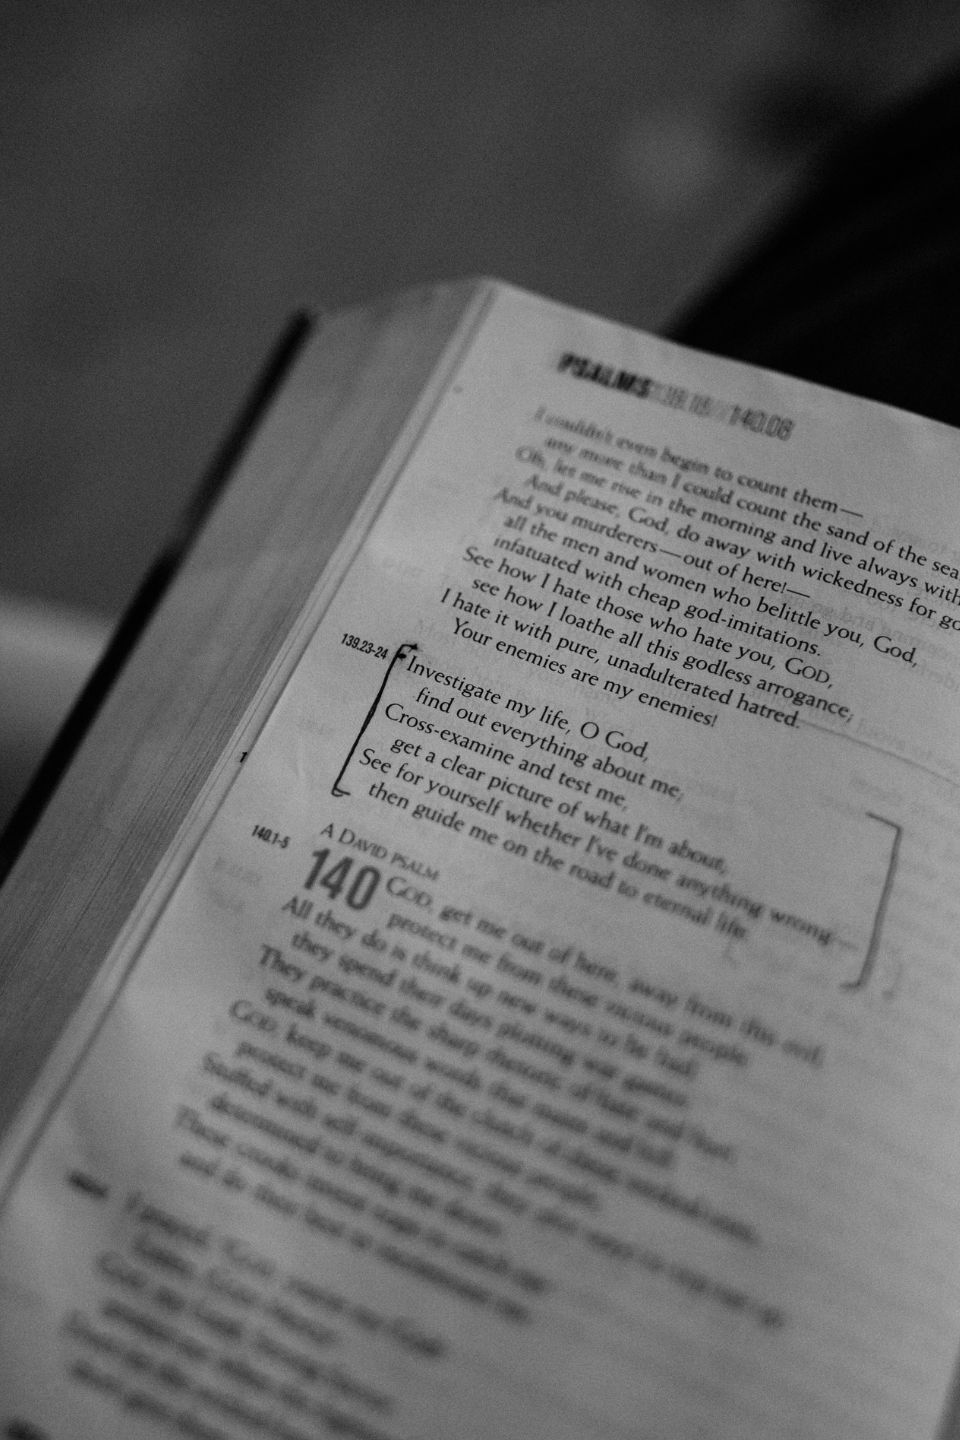 PSALMS 139.18 // 140.08
I couldn't even begin to count them—
any more than I could count the sand of the sea.
Oh, let me rise in the morning and live always with
And please, God, do away with wickedness for
And you murderers—out of here!—
all the men and women who belittle you, God,
infatuated with cheap god-imitations.
See how I hate those who hate you, GOD,
see how I loathe all this godless arrogance;
I hate it with pure, unadulterated hatred.
Your enemies are my enemies!
139.23-24
Investigate my life, O God,
find out everything about me;
Cross-examine and test me,
get a clear picture of what I'm about;
See for yourself whether I've done anything wrong—
then guide me on the road to eternal life.
1
140.1-5
A DAVID PSALM
140 GOD, get me out of here, away from this evil;
protect me from these vicious people.
All they do is think up new ways to be bad;
they spend their days plotting war games.
They practice the sharp rhetoric of hate and hurt,
speak venomous words that maim and kill.
GOD, keep me out of the clutch of these wicked ones,
protect me from these vicious people;
Stuffed with self-importance, they plot ways to trip me up,
determined to bring me down.
These crooks invent traps to catch me
and do their best to incriminate me.